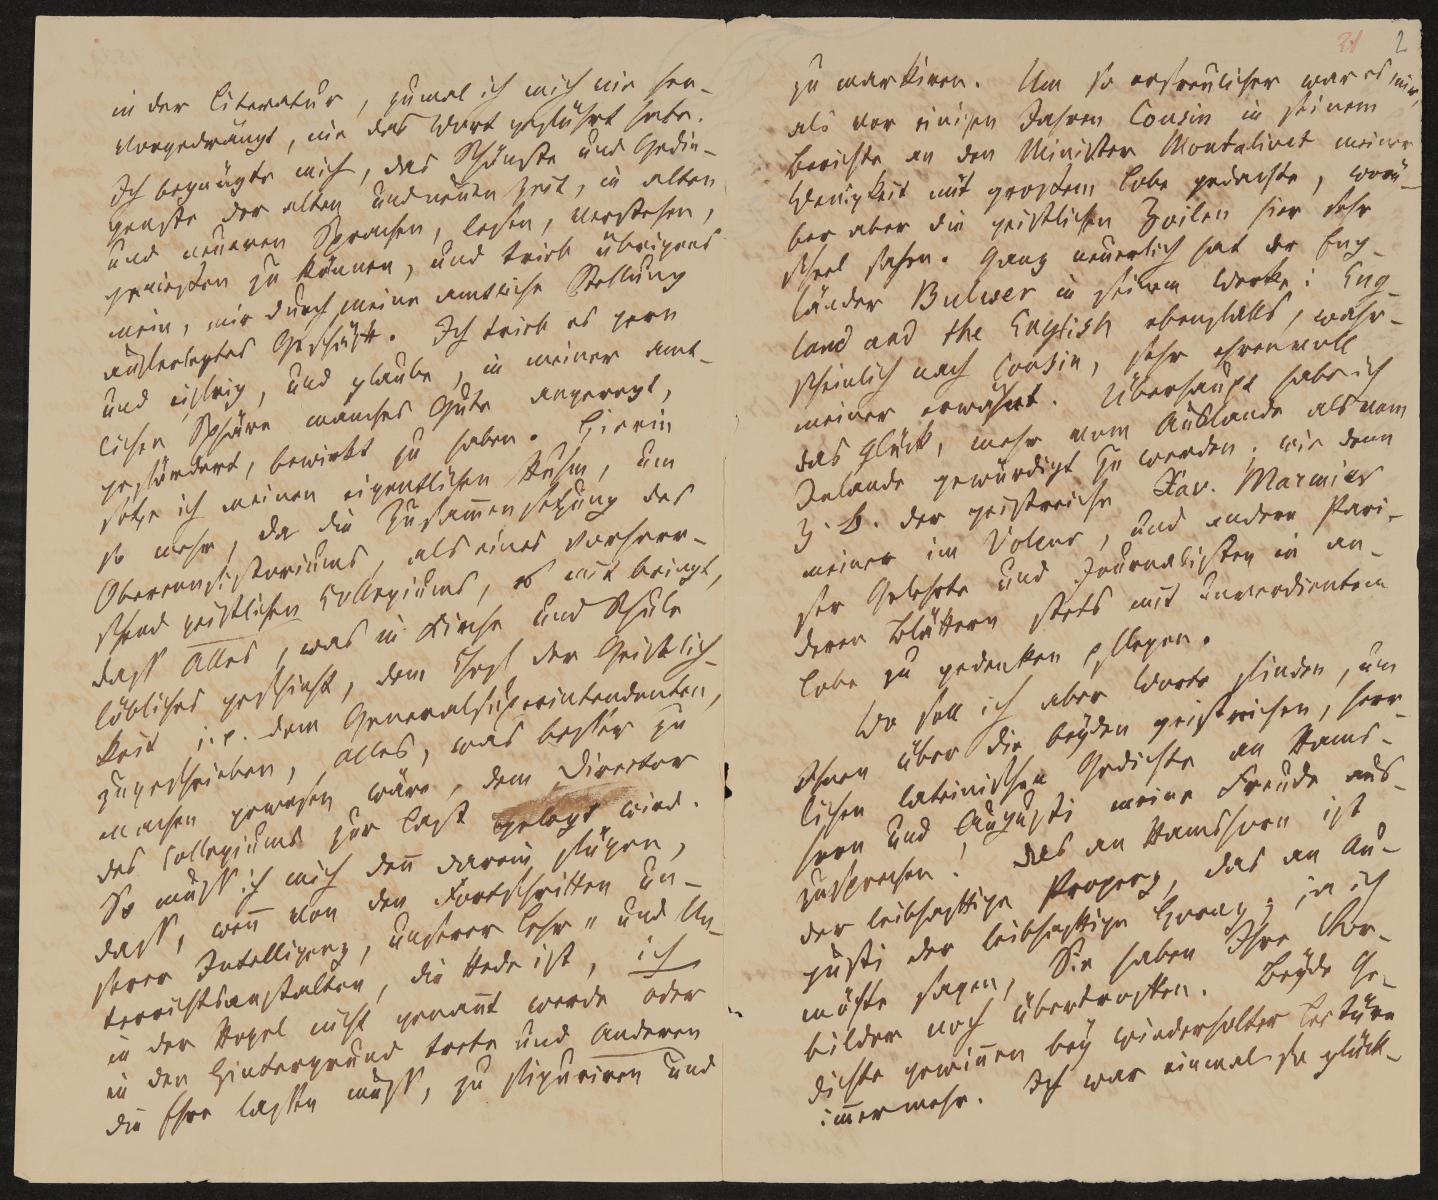 in der Literatur, zumal ich mich nie her-
vorgedrängt, nie das Wort geführt habe.
Ich begnügte mich, das Schönste und Gedie-
genste der alten und neuen Zeit, in alten
und neueren Sprachen, lesen, verstehen,
genießen zu können, und trieb übrigens
mein, mir durch meine amtliche Stellung
auferlegtes Geschäft. Ich trieb es gern
und eifrig, und glaube, in meiner amt-
lichen Sphäre manches Gute angeregt,
gefördert, bewirkt zu haben. Hierin
setze ich meinen eigentlichen Ruhm, um
so mehr, da die Zusammensetzung des
Oberconsistoriums, als eines vorherr-
schend geistlichen Collegiums, es mit bringt,
dass Alles, was in Kirche und Schule
löbliches geschieht, dem Chef der Geistlich-
keit i.e. dem Generalsuperintendenten,
zugeschrieben, alles, was besser zu
machen gewesen wäre, dem Director
des Collegiums zur Last gelegt wird.
So muss ich mich denn darein fügen,
dass, wenn von den Fortschritten un-
serer Intelligenz, unserer Lehr- und Un-
terrichtsanstalten, die Rede ist, ich
in der Regel nicht genannt werde oder
in den Hintergrund trete und Anderen
die Ehre lassen muss, zu figuriren und
21 2
zu markiren. Um so erfreulicher war es mir,
als vor einigen Jahren Cousin in seinem
Berichte an den Minister Montalivet meiner
Wenigkeit mit grossem Lobe gedachte, worü-
ber aber die geistlichen Zoilen hier sehr
scheel sahen. Ganz neuerlich hat der Eng-
länder Bulwer in seinem Werke: Eng-
land and the English ebenfalls, wahr-
scheinlich nach Cousin, sehr ehrenvoll
meiner erwähnt. Überhaupt habe ich
das Glück, mehr vom Auslande als vom
Inlande gewürdigt zu werden; wie denn
z. B. der geistreiche Xav. Marmier
meiner im Voleur, und andere Pari-
ser Gelehrte und Journalisten in an-
deren Blättern stets mit unverdientem
Lobe zu gedenken pflegen.
Wo soll ich aber Worte finden, um
Ihnen über die beyden geistreichen, herr-
lichen lateinischen Gedichte an Rams-
horn und Augusti meine Freude aus-
zusprechen! Das an Ramshorn ist
der leibhaftige Properz, das an Au-
gusti der leibhaftige Horaz; ja ich
möchte sagen, Sie haben Ihre Vor-
bilder noch übertroffen. Beyde Ge-
dichte gewinnen bey wiederholter Lectüre
immer mehr. Ich war einmal so glück-